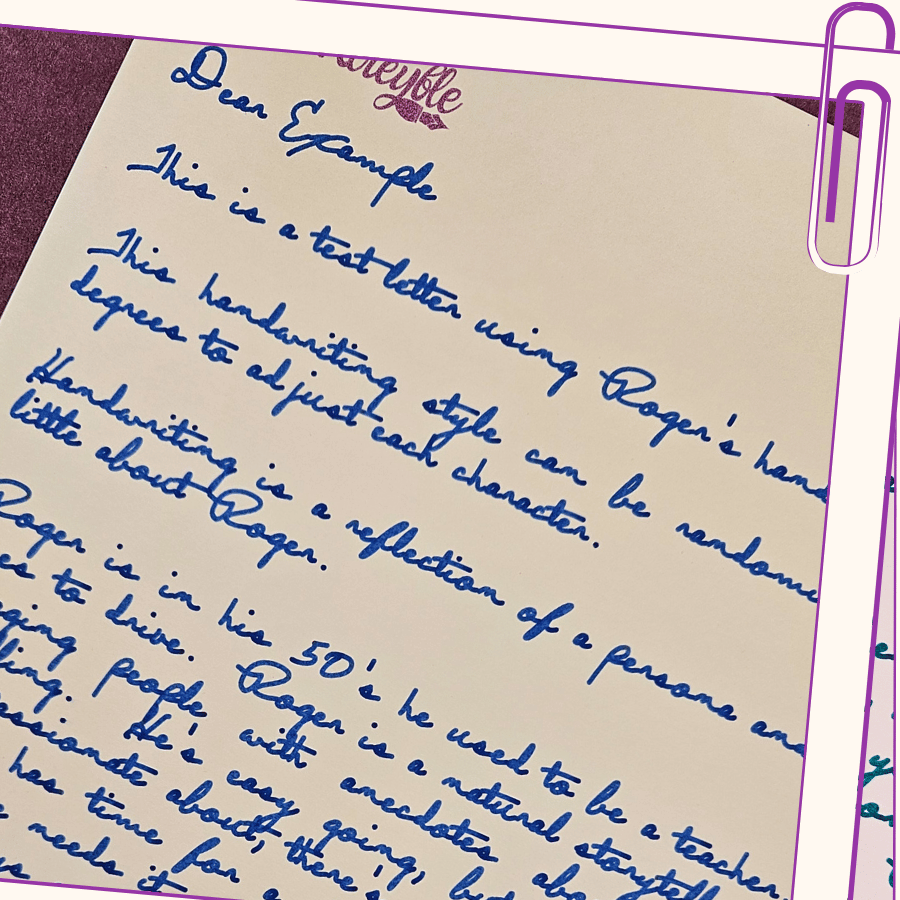 Dear Example
This is a test letter using Roger's hand
This handwriting style can be randomi
degrees to adjust each character.
Handwriting is a reflection of a persona and
little about Roger.
Roger is in his 50's he used to be a teacher.
es to drive. Roger is a natural storytell
ging people with anecdotes abo
ling. He's easy going, but
essionate about, there's
has time for a
needs it
us